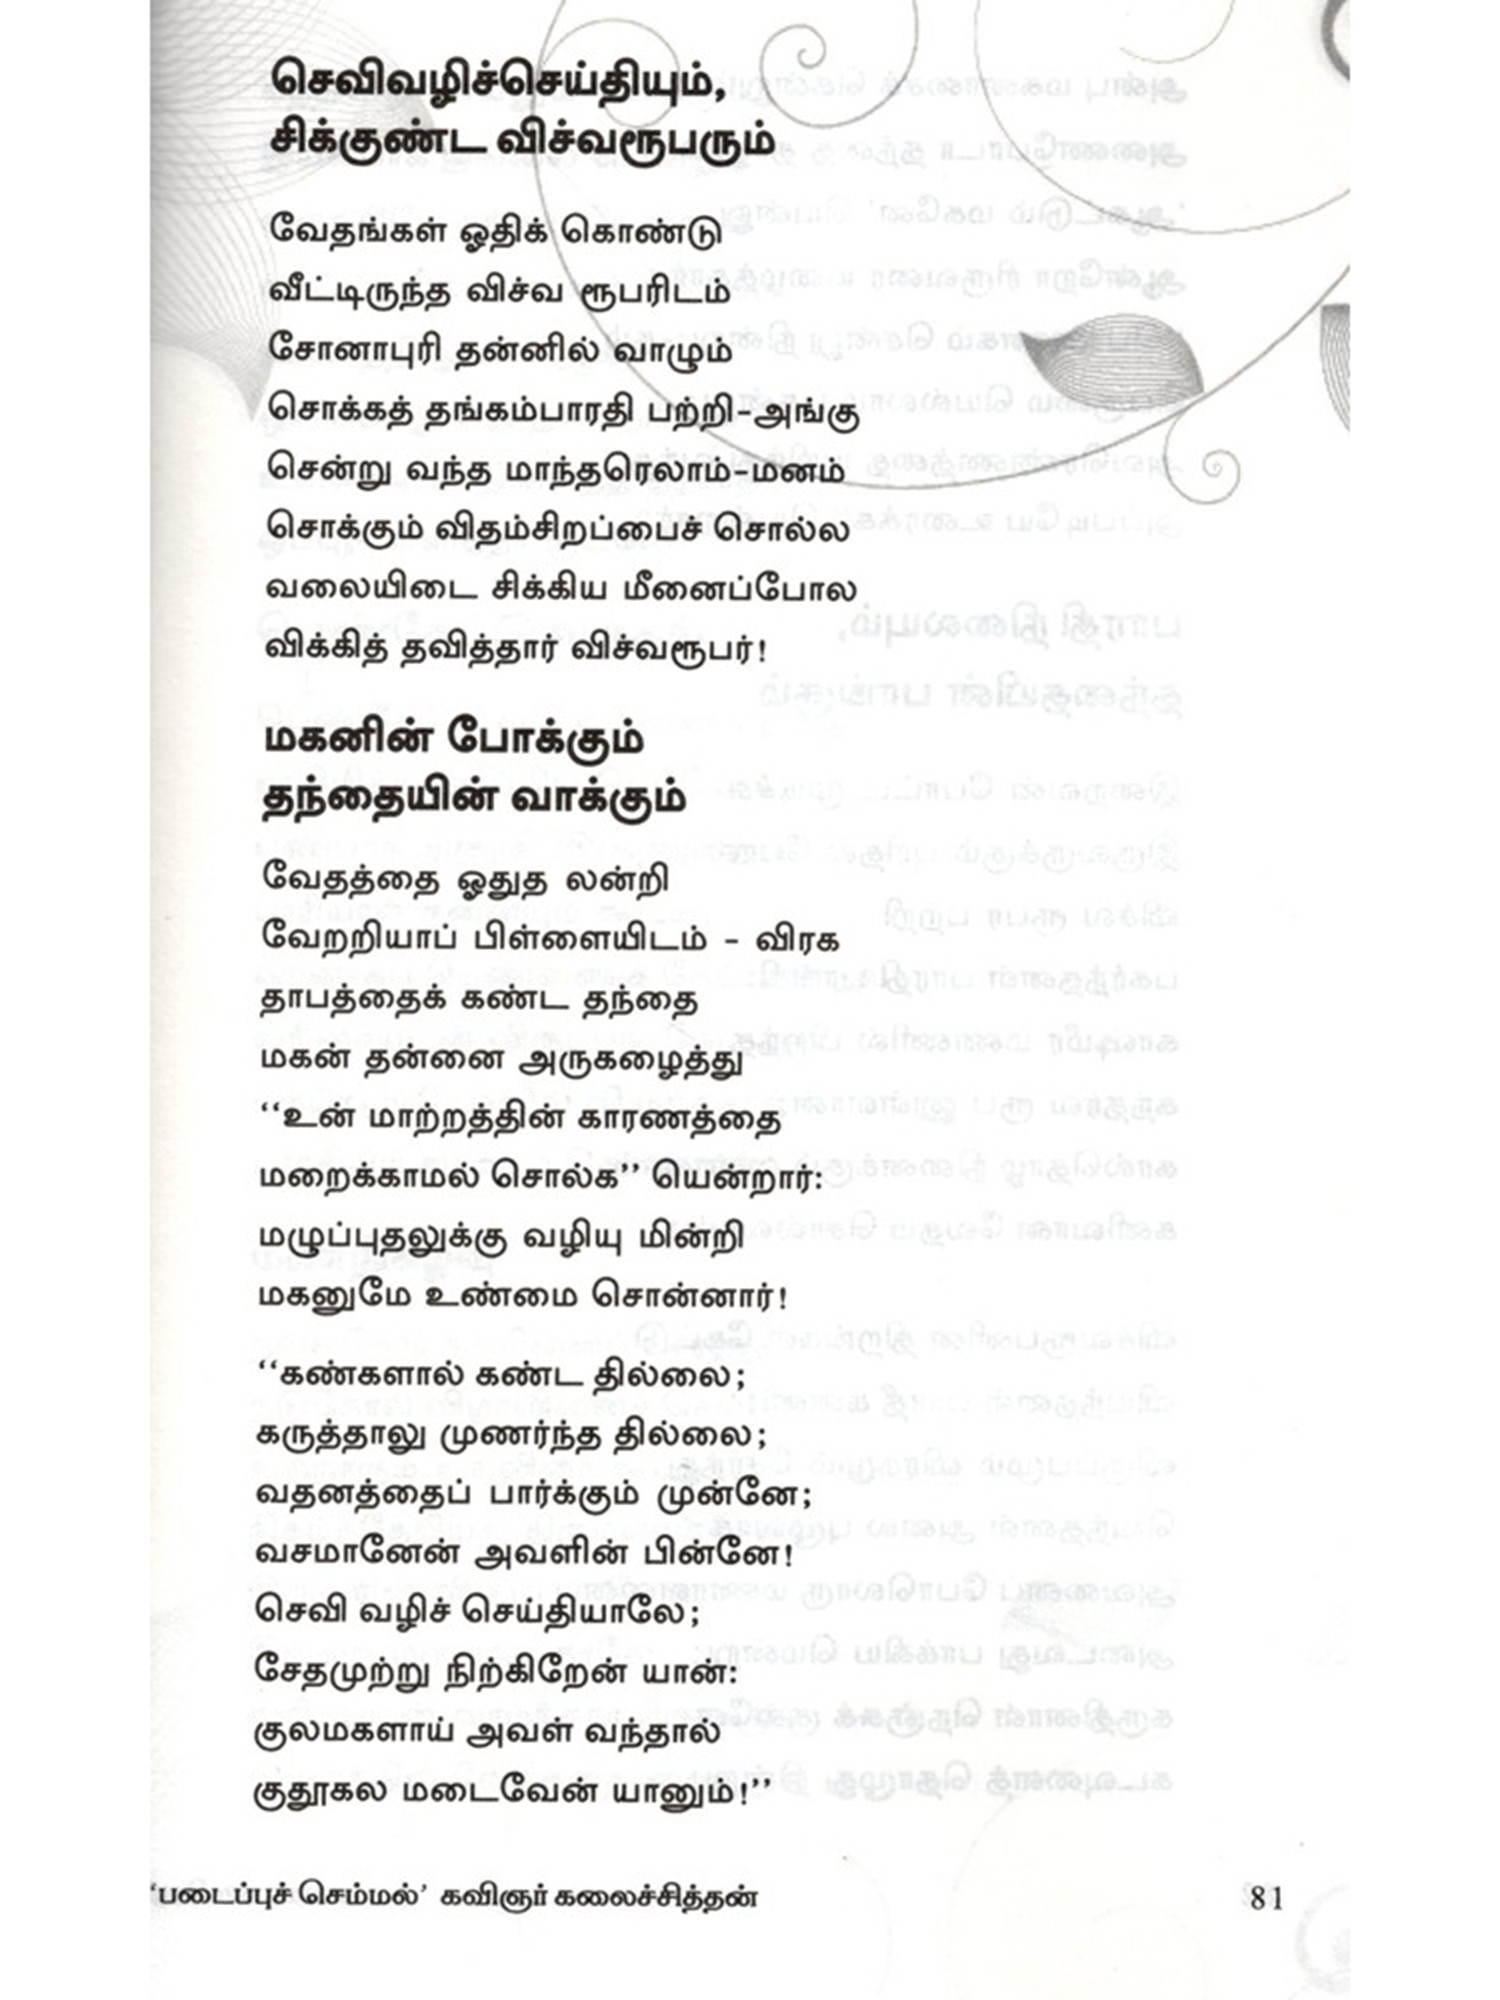 செவிவழிச்செய்தியும்,
சிக்குண்ட விச்வரூபரும்
வேதங்கள் ஓதிக் கொண்டு
வீட்டிருந்த விச்வ ரூபரிடம்
சோனாபுரி தன்னில் வாழும்
சொக்கத் தங்கம்பாரதி பற்றி-அங்கு
சென்று வந்த மாந்தரெலாம்-மனம்
சொக்கும் விதம்சிறப்பைச் சொல்ல
வலையிடை சிக்கிய மீனைப்போல
விக்கித் தவித்தார் விச்வரூபர்!
மகனின் போக்கும்
தந்தையின் வாக்கும்
வேதத்தை ஓதுத லன்றி
வேறறியாப் பிள்ளையிடம் - விரக
தாபத்தைக் கண்ட தந்தை
மகன் தன்னை அருகழைத்து
‘‘உன் மாற்றத்தின் காரணத்தை
மறைக்காமல் சொல்க’’ யென்றார்:
மழுப்புதலுக்கு வழியு மின்றி
மகனுமே உண்மை சொன்னார்!
‘‘கண்களால் கண்ட தில்லை;
கருத்தாலு முணர்ந்த தில்லை;
வதனத்தைப் பார்க்கும் முன்னே;
வசமானேன் அவளின் பின்னே!
செவி வழிச் செய்தியாலே;
சேதமுற்று நிற்கிறேன் யான்:
குலமகளாய் அவள் வந்தால்
குதூகல மடைவேன் யானும்!’’
‘படைப்புச் செம்மல்’ கவிஞர் கலைச்சித்தன்
81